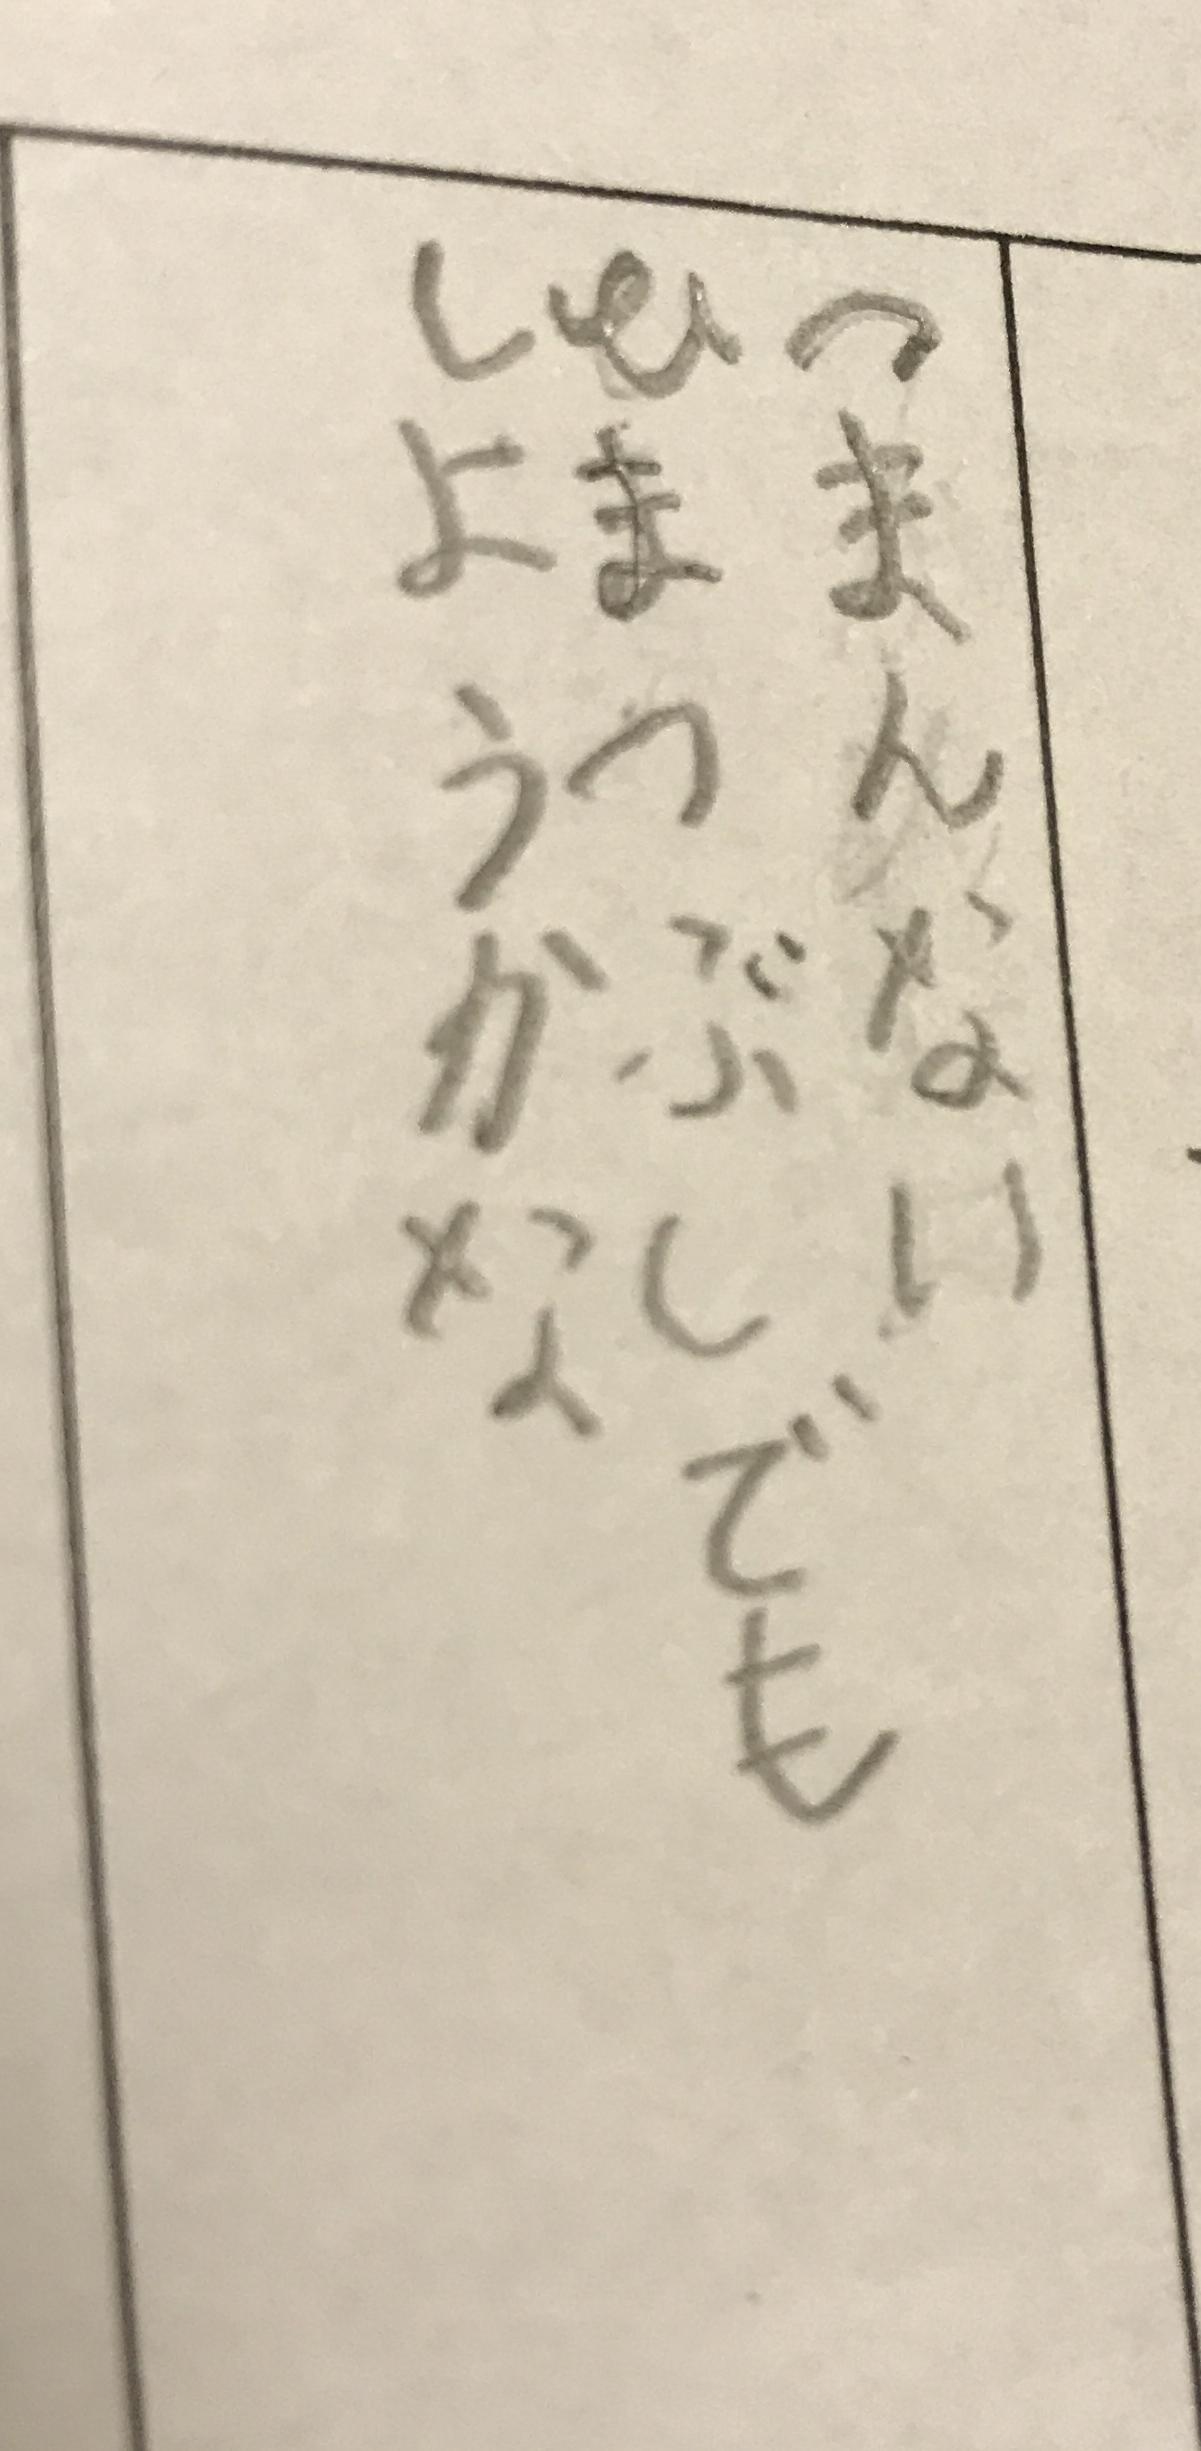 つまんない
ひまつぶしでも
しようかな